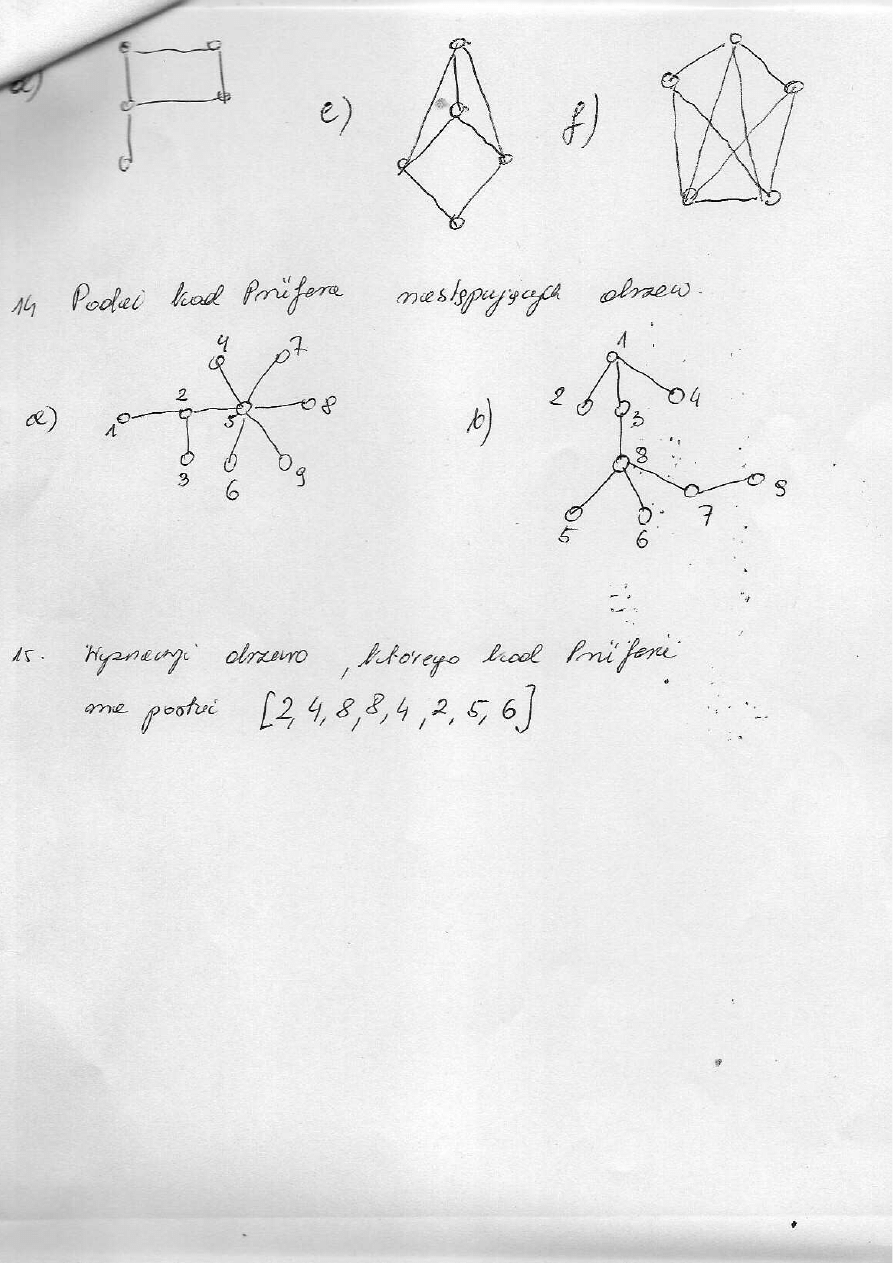 d)
e)
f)
14 Podać kod Prüfera następujących drzew.
a)
1
2
3
4
5
6
7
8
9
b)
1
2
3
4
8
5
6
7
9
15. Wyznaczyć drzewo, którego kod Prüfera
ma postać [2, 4, 8, 8, 4, 2, 5, 6]